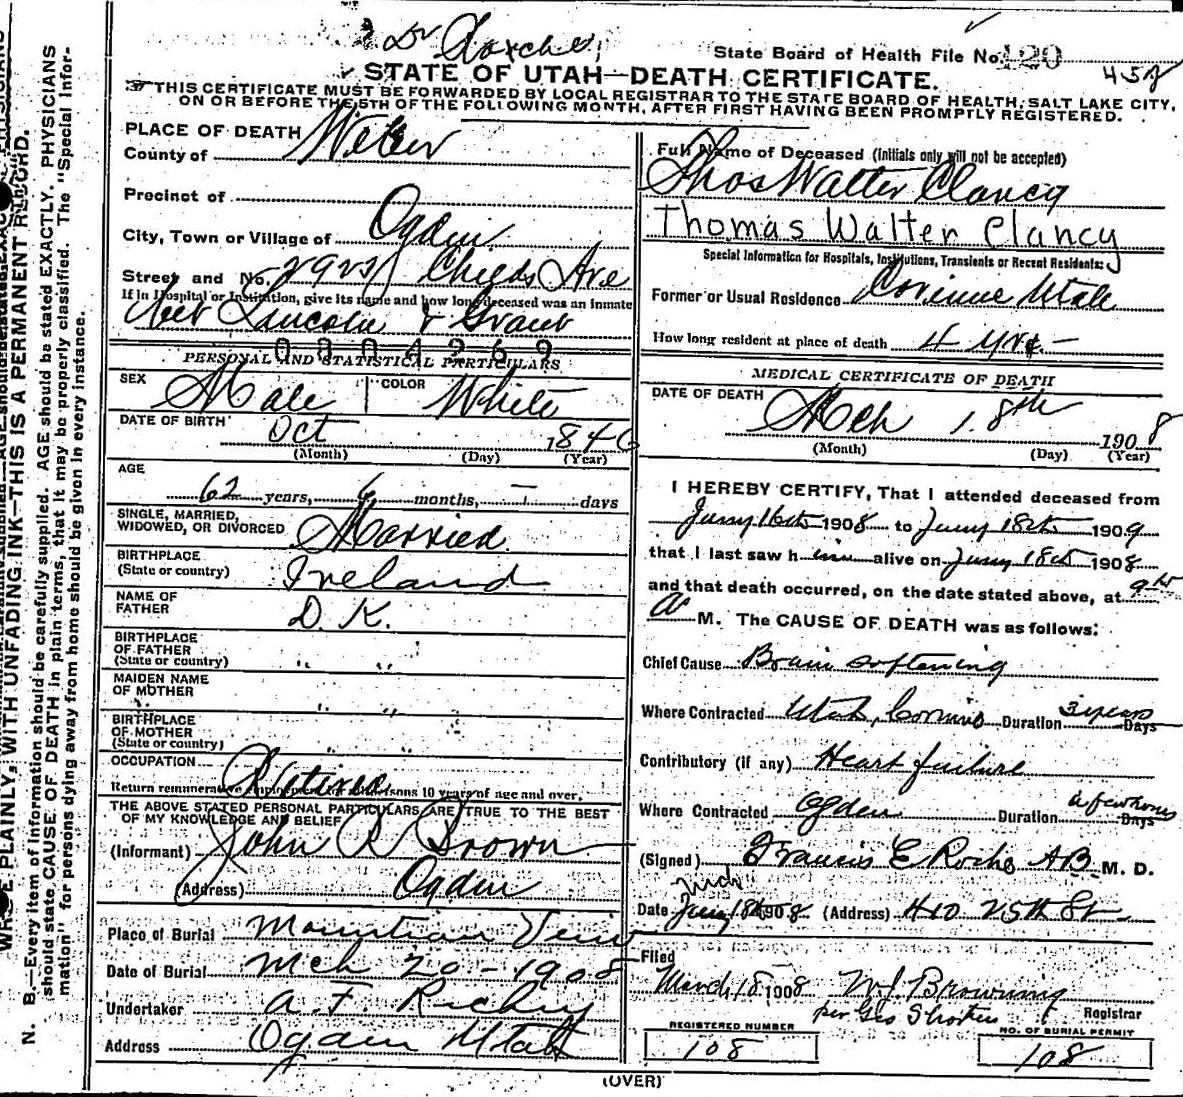 State Board of Health File No. 120
STATE OF UTAH—DEATH CERTIFICATE.
THIS CERTIFICATE MUST BE FORWARDED BY LOCAL REGISTRAR TO THE STATE BOARD OF HEALTH, SALT LAKE CITY,
ON OR BEFORE THE 5TH OF THE FOLLOWING MONTH, AFTER FIRST HAVING BEEN PROMPTLY REGISTERED.
PLACE OF DEATH
County of Weber
Precinct of
City, Town or Village of Ogden
Street and No. Childs Ave
If in Hospital or Institution, give its name and how long deceased was an inmate
Bet Lincoln & Grant
0304269
PERSONAL AND STATISTICAL PARTICULARS
SEX Male COLOR White
DATE OF BIRTH Oct 1846
(Month) (Day) (Year)
AGE
62 years, 6 months, — days
SINGLE, MARRIED,
WIDOWED, OR DIVORCED Married
BIRTHPLACE
(State or country) Ireland
NAME OF
FATHER D. K.
BIRTHPLACE
OF FATHER
(State or country) " "
MAIDEN NAME
OF MOTHER " "
BIRTHPLACE
OF MOTHER
(State or country) " "
OCCUPATION Retired
Return remunerative employment for all persons 10 years of age and over.
THE ABOVE STATED PERSONAL PARTICULARS ARE TRUE TO THE BEST
OF MY KNOWLEDGE AND BELIEF
(Informant) John R Brown
(Address) Ogden
Place of Burial Mountian View
Date of Burial Mch 20-1908
Undertaker A. F. Richey
Address Ogden Utah
Full Name of Deceased (Initials only will not be accepted)
Thos Walter Clancy
Thomas Walter Clancy
Special Information for Hospitals, Institutions, Transients or Recent Residents:
Former or Usual Residence Corinne Utah
How long resident at place of death 4 yrs.—
MEDICAL CERTIFICATE OF DEATH
DATE OF DEATH
Mch 18th 1908
(Month) (Day) (Year)
I HEREBY CERTIFY, That I attended deceased from
16th 1908 to 18th 1909
that I last saw him alive on 18th 1908
and that death occurred, on the date stated above, at 9
A M. The CAUSE OF DEATH was as follows:
Chief Cause Brain softening
Where Contracted Utah, Duration 3 years Days
Contributory (if any) Heart failure
Where Contracted Ogden Duration a few hours Days
(Signed) Francis E Roche AB M. D.
Date Mch 18th 1908 (Address) 410 25th St
Filed
March 18 1908 W J Browning
per Geo Registrar
REGISTERED NUMBER
108
NO. OF BURIAL PERMIT
108
(OVER)
WRITE PLAINLY, WITH UNFADING INK—THIS IS A PERMANENT RECORD.
N. B.—Every item of information should be carefully supplied. AGE should be stated EXACTLY. PHYSICIANS
should state CAUSE OF DEATH in plain terms, that it may be properly classified. The "Special Infor-
mation" for persons dying away from home should be given in every instance.